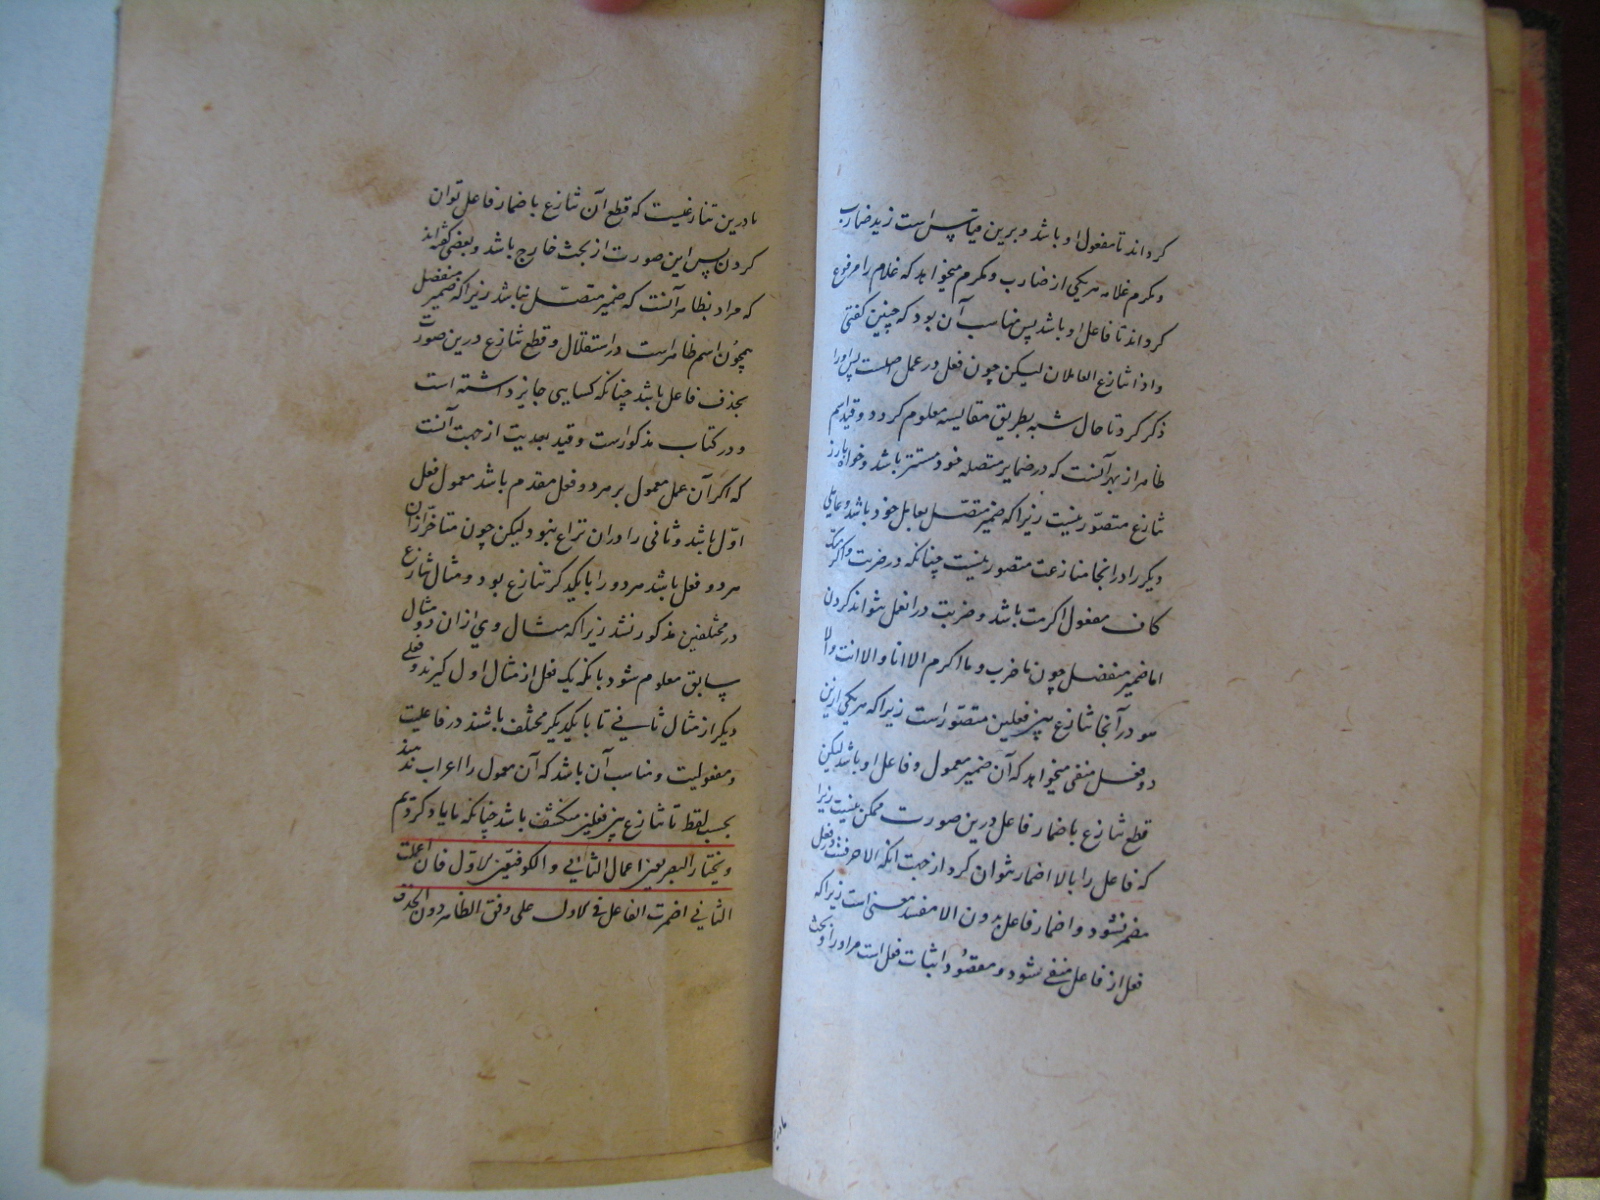 کرداند تا مفعول او باشد و برین قیاس است زید ضارب
ومکرم غلامه هریکی از ضارب ومکرم میخواهد که غلام را مرفوع
کرداند تا فاعل او باشد پس مناسب آن بود که چنین کفتی
واذا تنازع العاملان لیکن چون فعل در عمل اصلست پس اورا
ذکر کرد تا حال شبه بطریق مقایسه معلوم کردد وقید اسم
ظاهر از بهر آنست که در ضمایر متصله خود مستتر باشد وخواه بارز
تنازع متصوّر نیست زیرا که ضمیر متصّل بعامل خود باشد وعامل
دیکر را در انجا منازعت متصور نیست چنانکه در ضربت واکرمتک
کاف مفعول اکرمت باشد وضربت درا نعمل نتواند کردن
اما ضمیر منفصل چون ما ضرب وما اکرم الا انا والا انت والا
هو در آنجا تنازع بین فعلین متصوّر است زیرا که هریکی ازین
دو فعل منفی میخواهد که آن ضمیر معمول وفاعل او باشد لیکن
قطع تنازع باضمار فاعل درین صورت ممکن نیست زیرا
که فاعل را با الا اضمار نتوان کرد از جهت انکه الا حرفست و در فعل
مضمر نشود واضمار فاعل بدون الا مفسد معنی است زیرا که
فعل از فاعل منفی شود ومقصود اثبات فعل است مر اورا وبحث
ما درین تنازعیست که قطع آن تنازع باضمار فاعل توان
کردن پس این صورت از بحث خارج باشد وبعضی کفته اند
که مراد بظاهر آنست که ضمیر متصّل نباشد زیرا که ضمیر منفصل
همچون اسم ظاهر است در استقلال وقطع تنازع درین صورت
بحذف فاعل باشد چنانکه کسایی جایز داشته است
ودر کتاب مذکور است وقید بعدیت از جهت آنست
که اکر آن عمل معمول بر هر دو فعل مقدم باشد معمول فعل
اوّل باشد وثانی را دران نزاع نبود لیکن چون متاخّر ازان
هر دو فعل باشد هر دو را با یکدیکر تنازع بود ومثال تنازع
در مختلفین مذکور نشد زیرا که مثال وی ازان دو مثال
سابق معلوم شود بانکه یک فعل از مثال اول کیرند وفعلی
دیکر از مثال ثانی تا با یکدیکر مختلف باشند در فاعلیت
ومفعولیت ومناسب آن باشد که آن معمول را اعراب ندهند
بحسب لفظ تا تنازع بین فعلین منکشف باشد چنانکه ما یاد کردیم
ویختار البصریون اعمال الثانی والکوفیون الاوّل فان اعملت
الثانی اضمرت الفاعل فی الاول علی وفق الظاهر دون الحذف